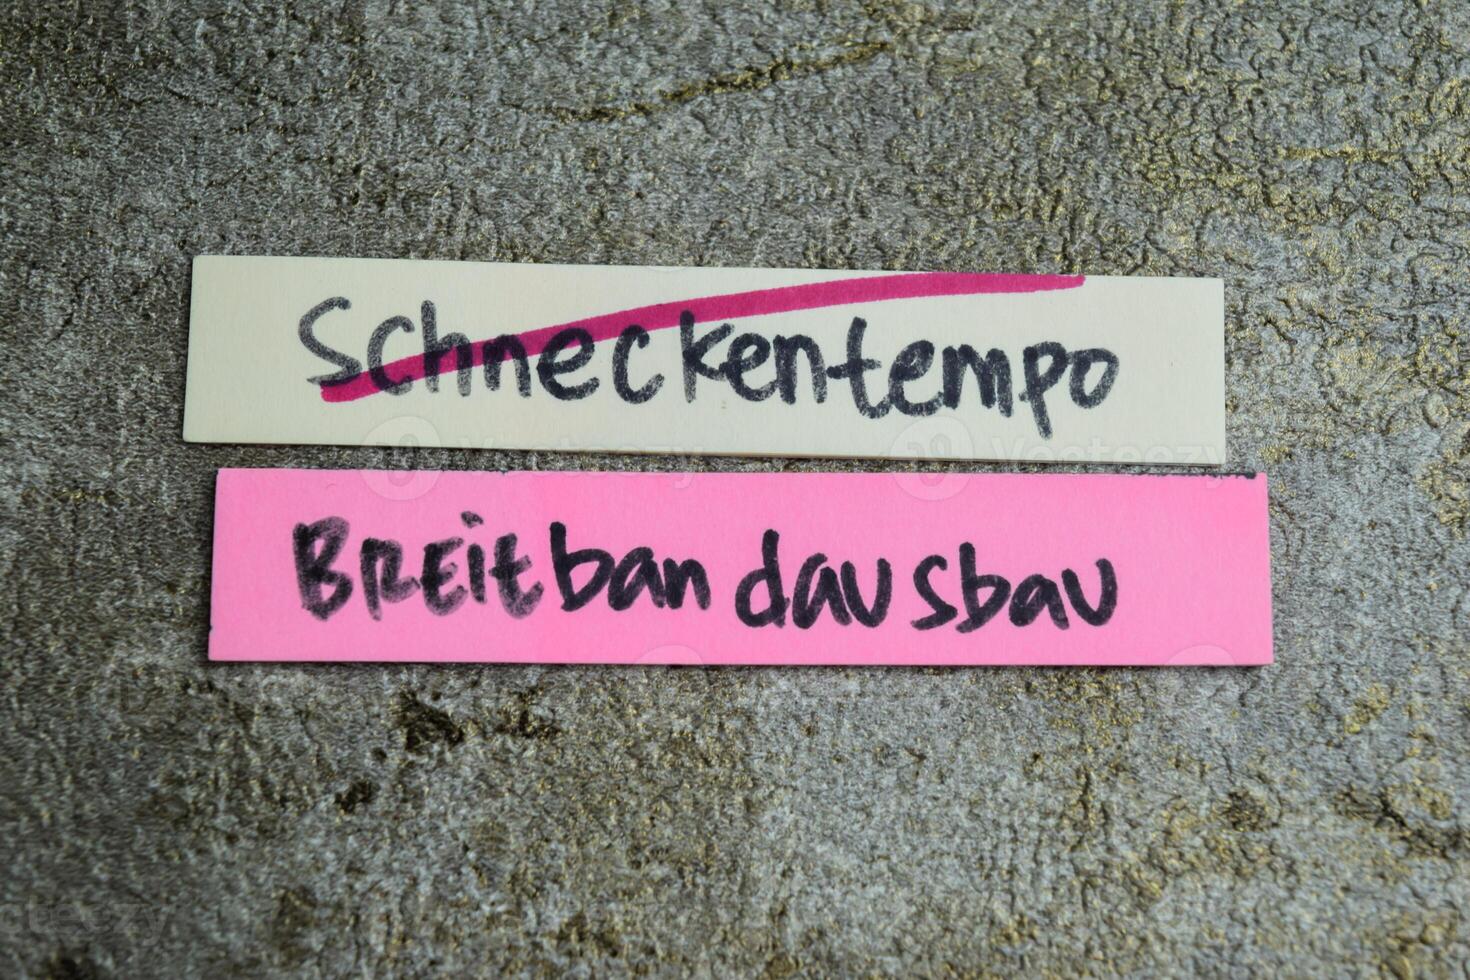 Schneckentempo
Vecteezy Vecteezy
Breitbandausbau